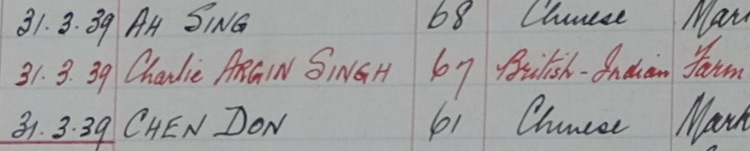 31.3.39 AH SING 68 Chinese Mar
31.3.39 Charlie ARGIN SINGH 67 British-Indian Farm
31.3.39 CHEN DON 61 Chinese Mark